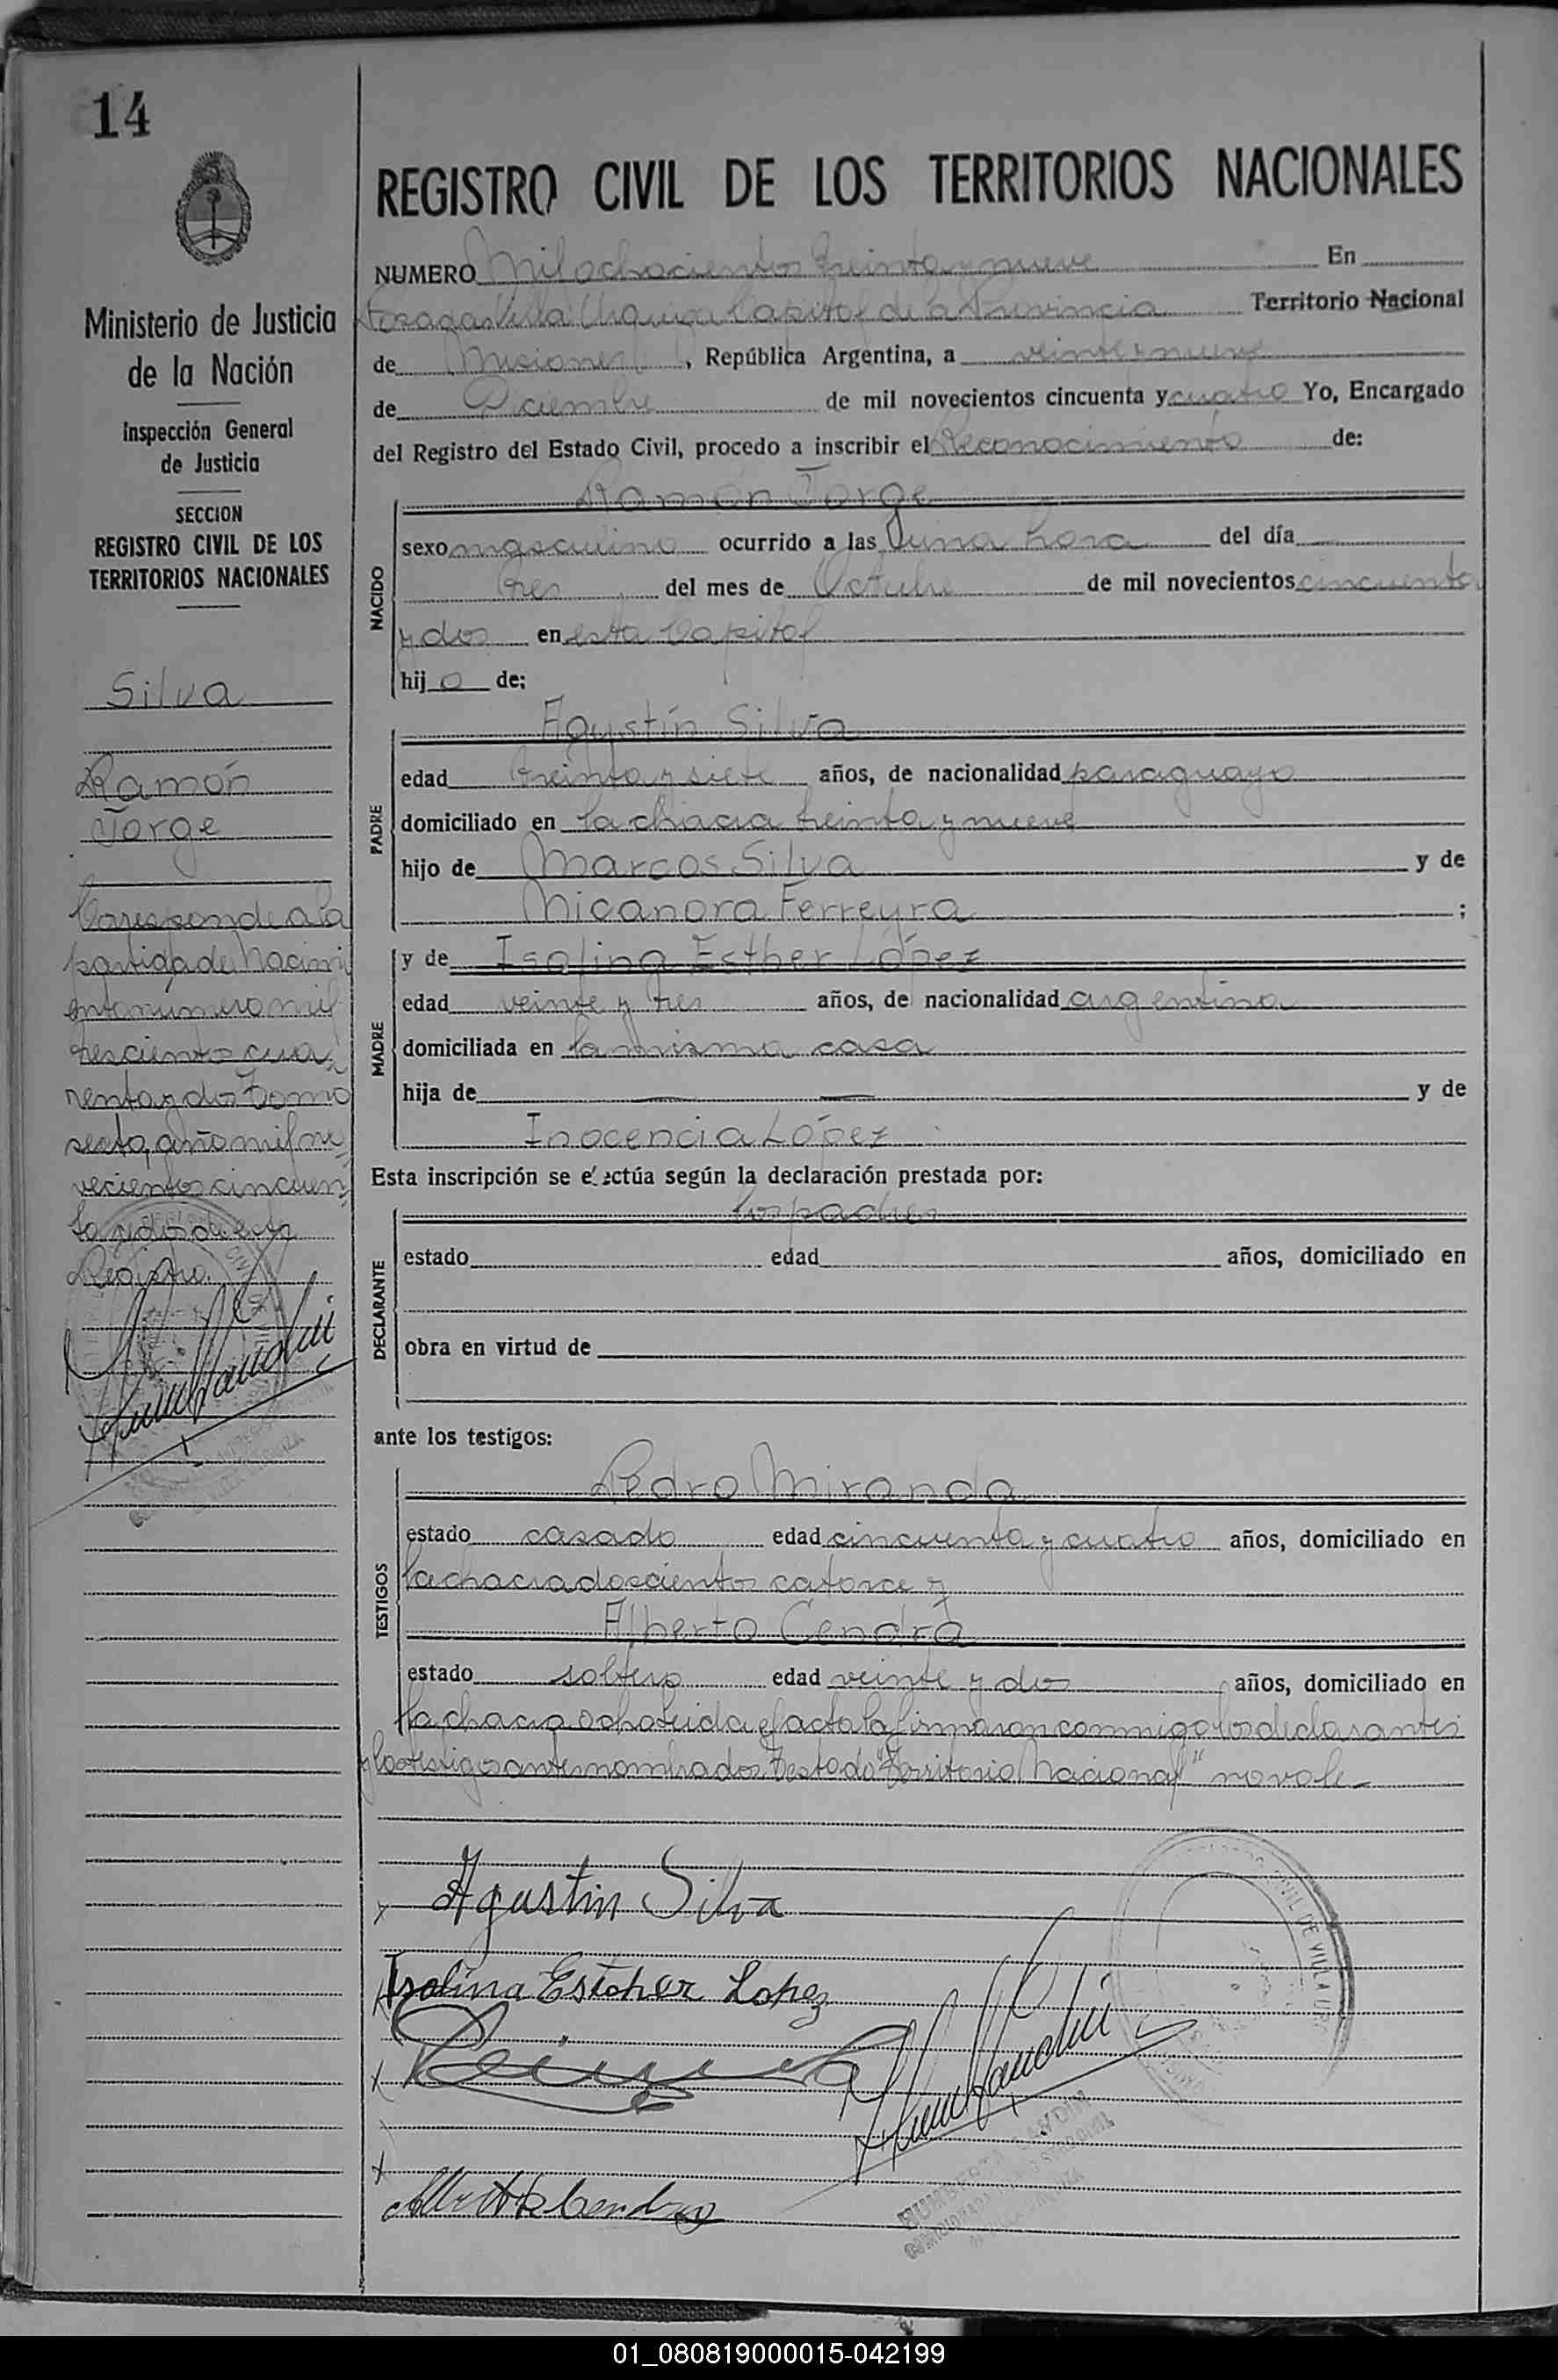 14
REGISTRO CIVIL DE LOS TERRITORIOS NACIONALES
NUMERO Mil ochocientos treinta y nueve En
Posadas Villa Urquiza Capital de la Provincia Territorio Nacional
de Misiones, República Argentina, a veinte y nueve
de Diciembre de mil novecientos cincuenta y cuatro Yo, Encargado
del Registro del Estado Civil, procedo a inscribir el Reconocimiento de:
Ministerio de Justicia
de la Nación
Inspección General
de Justicia
SECCION
REGISTRO CIVIL DE LOS
TERRITORIOS NACIONALES
Silva
Ramón
Jorge
Corresponde a la
partida de Nacimi
ento número mil
trescientos cua
renta y dos Tomo
sexto, año mil no
vecientos cincuen
ta y dos de este
Registro.
NACIDO
Ramón Jorge
sexo masculino ocurrido a las una hora del día
tres del mes de Octubre de mil novecientos cincuenta
y dos en esta Capital
hijo de:
PADRE
Agustín Silva
edad treinta y siete años, de nacionalidad paraguayo
domiciliado en la chacra treinta y nueve
hijo de Marcos Silva y de
Nicanora Ferreyra ;
MADRE
y de Isolina Esther López
edad veinte y tres años, de nacionalidad argentina
domiciliada en la misma casa
hija de y de
Inocencia López
Esta inscripción se efectúa según la declaración prestada por:
DECLARANTE
los padres
estado edad años, domiciliado en
obra en virtud de
ante los testigos:
TESTIGOS
Pedro Miranda
estado casado edad cincuenta y cuatro años, domiciliado en
la chacra doscientos catorce y
Alberto Cendra
estado soltero edad veinte y dos años, domiciliado en
la chacra ocho leida el acta la firmaron conmigo los declarantes
y los testigos antes nombrados Testado "Territorio Nacional" no vale-
Agustin Silva
Isolina Esther Lopez
CIVIL DE VILLA
01_080819000015-042199